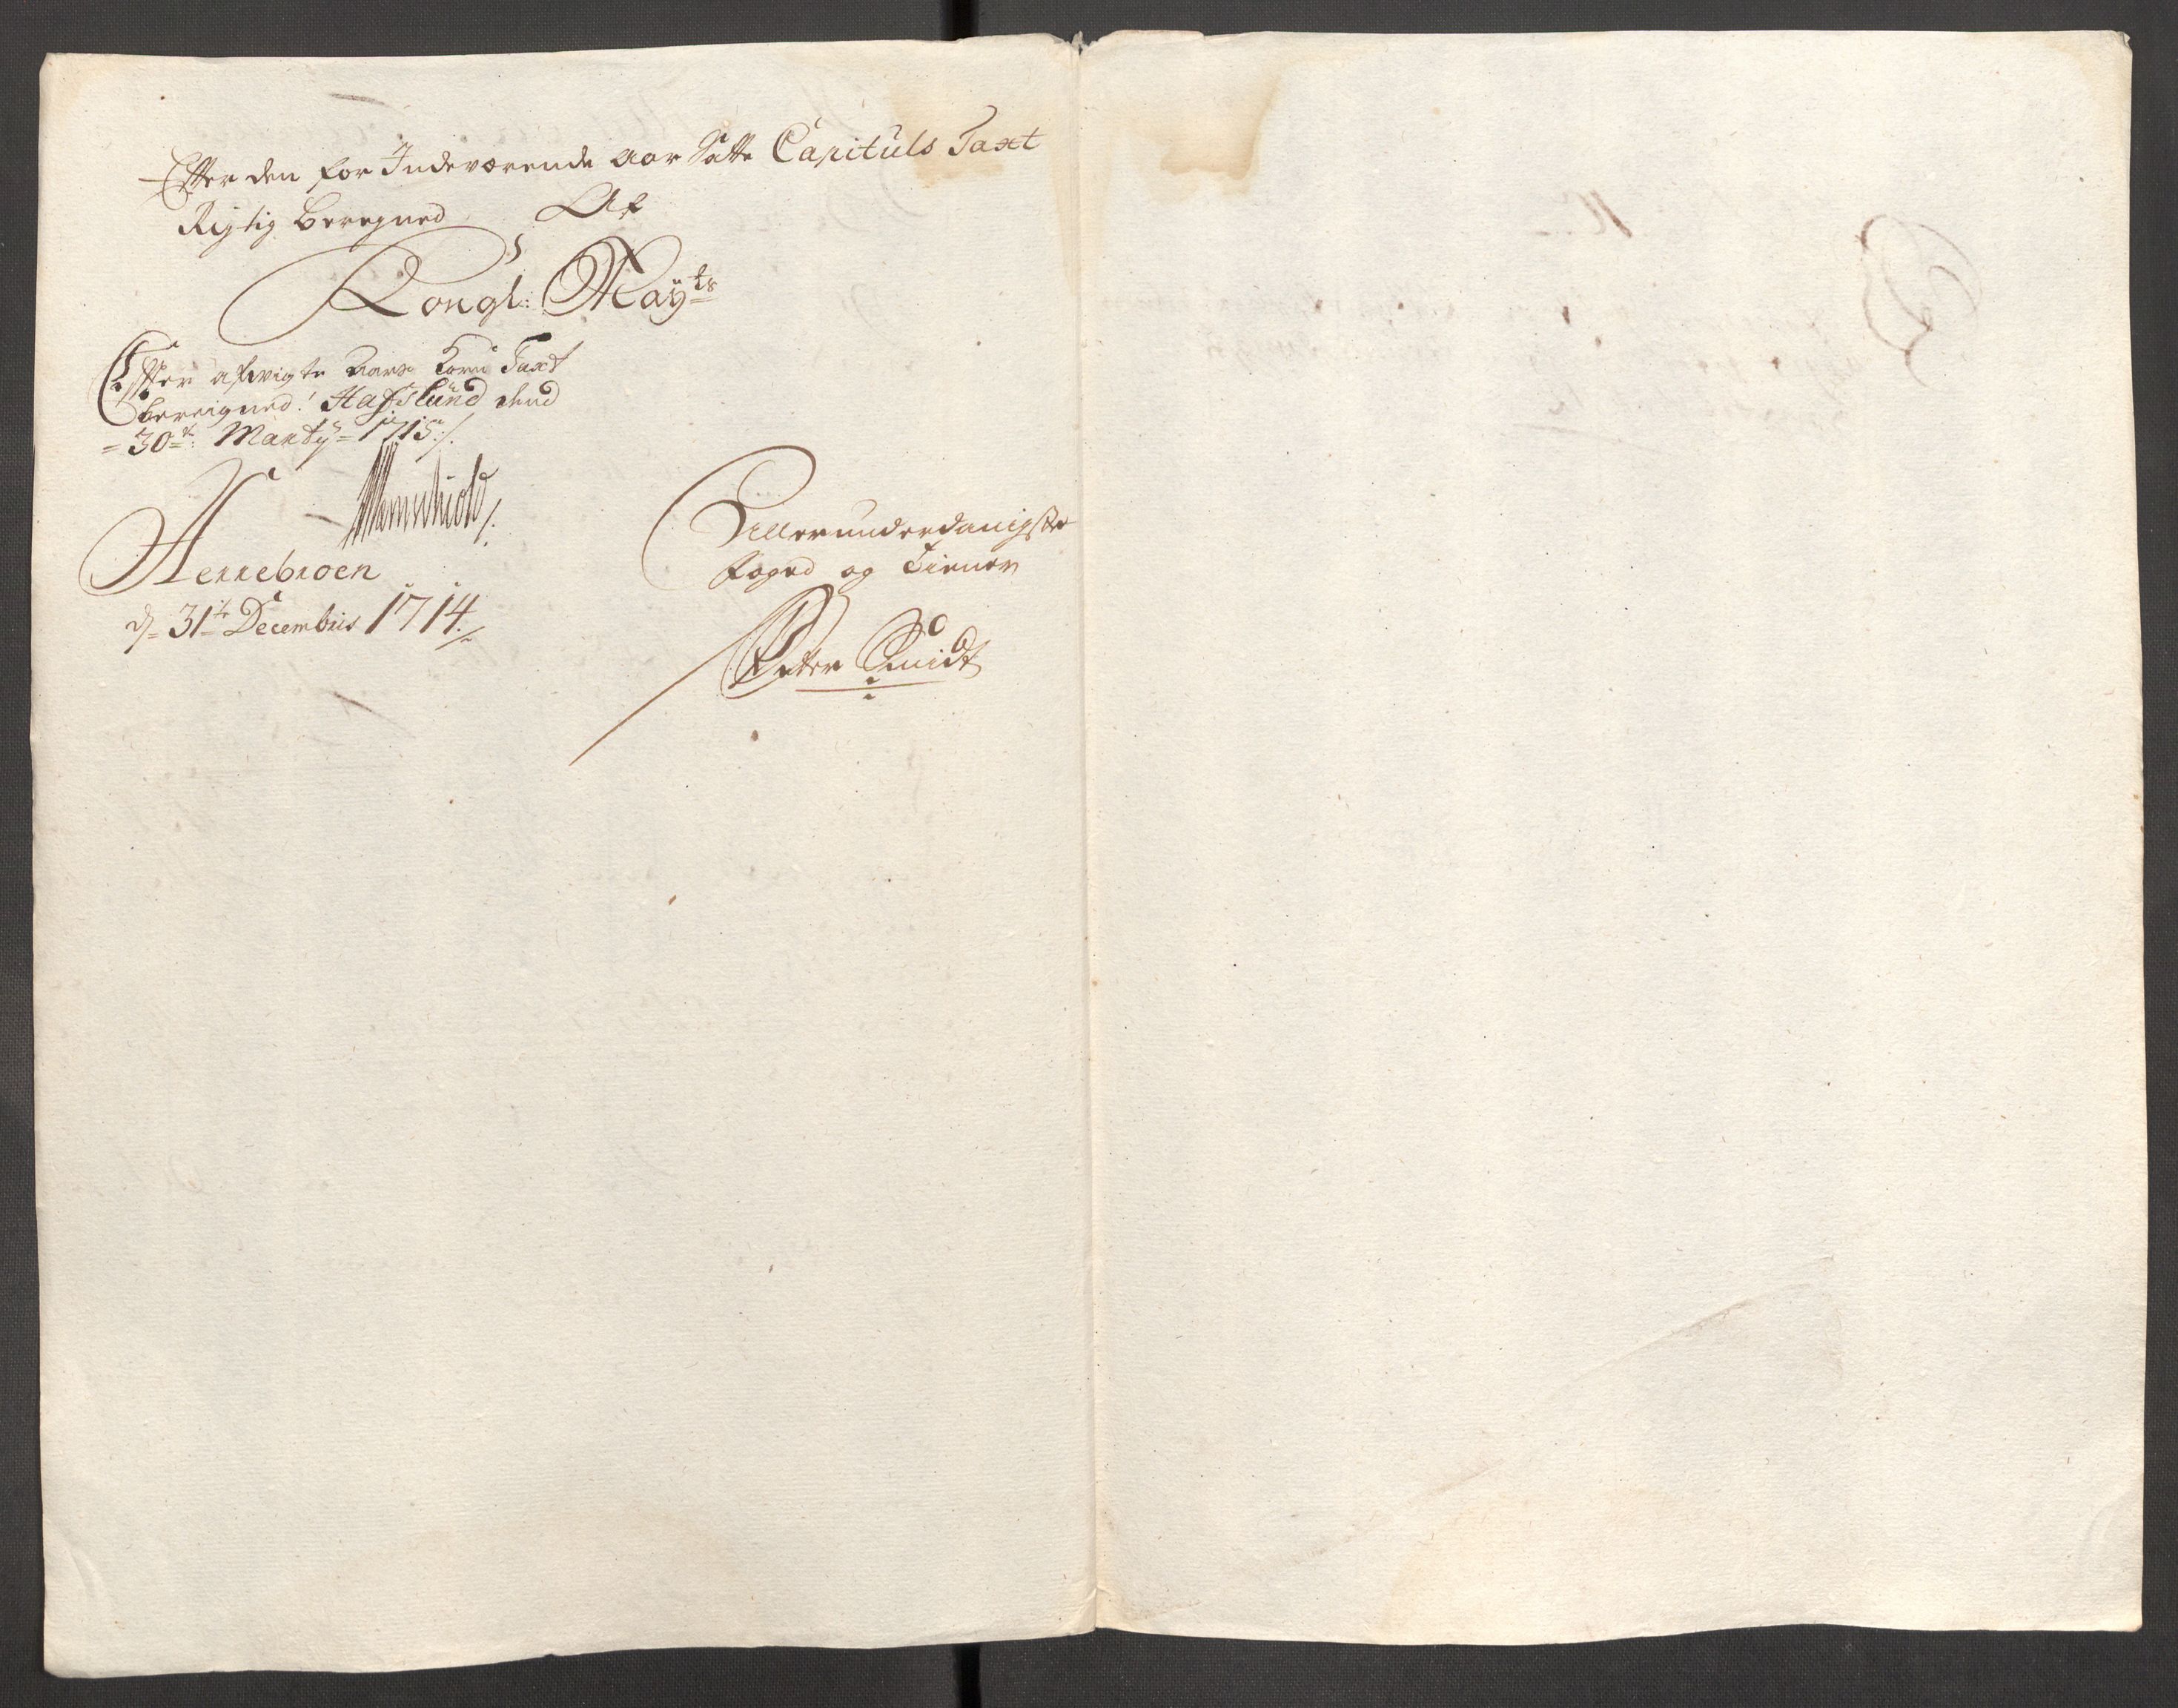 Efter den for Indeværende Aar Satte Capituls Taxt
Rigtig Beregned Af
Kongl: Mayts
Efter afvigte Aars Korn Taxt
bereigned! Hafslund dend
=30t: Marty= 1715:/.
Herrebroen
d= 31te Decembris 1714./.
Allerunderdanigste
Foged og Tiener
Peter Smidt